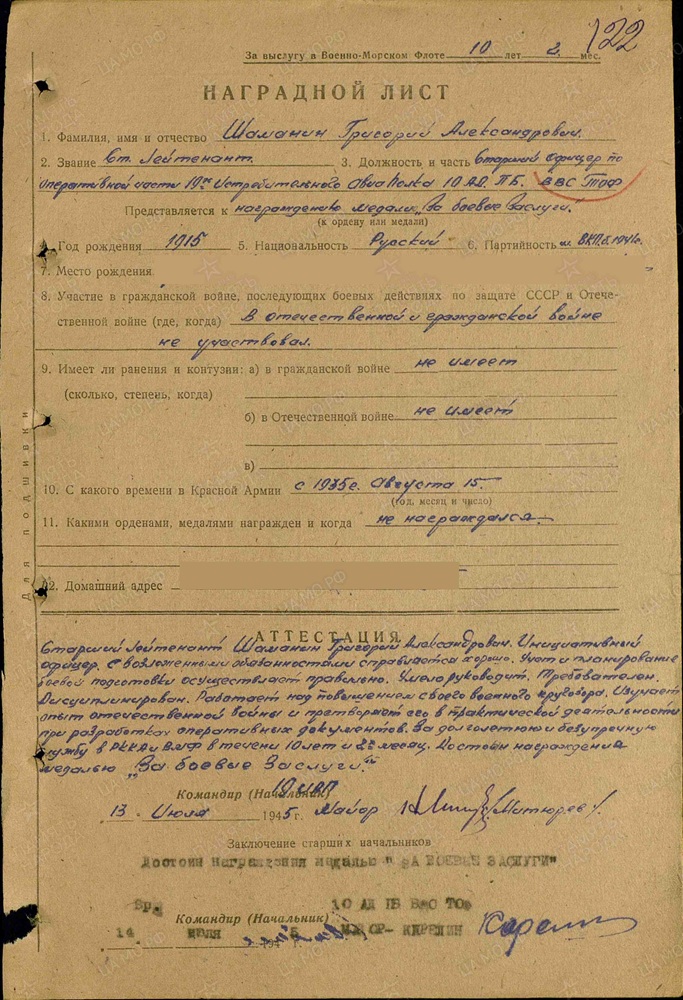 122
За выслугу в Военно-Морском Флоте 10 лет 2 мес.
НАГРАДНОЙ ЛИСТ
1. Фамилия, имя и отчество Шаманин Григорий Александрович.
2. Звание Ст. Лейтенант. 3. Должность и часть Старший офицер по
оперативной части 19го Истребительного АвиаПолка 10 АД. П.Б. ВВС ТОФ
Представляется к награждению медалью „За боевые Заслуги."
(к ордену или медали)
4. Год рождения 1915 5. Национальность Русский 6. Партийность чл. ВКП.б. 1941г.
7. Место рождения
8. Участие в гражданской войне, последующих боевых действиях по защите СССР и Отече-
ственной войне (где, когда) В отечественной и гражданской войне
не участвовал.
9. Имеет ли ранения и контузии: а) в гражданской войне не имеет
(сколько, степень, когда)
б) в Отечественной войне не имеет
в)
10. С какого времени в Красной Армии с 1935г. Августа 15.
(год, месяц и число)
11. Какими орденами, медалями награжден и когда не награждался.
12. Домашний адрес
Для подшивки
АТТЕСТАЦИЯ
Старший Лейтенант Шаманин Григорий Александрович. Инициативный
офицер. С возложенными обязанностями справляется хорошо. Учет и планирование
боевой подготовки осуществляет правильно. Умело руководит. Требователен.
Дисциплинирован. Работает над повышением своего военного кругозора. Изучает
опыт отечественной войны и претворяет его в практической деятельности
при разработках оперативных документов. За долголетнюю и безупречную
службу в РККА и ВМФ в течени 10 лет и 2х месяц. Достоин награждения
медалью „За боевые Заслуги."
Командир (Начальник) 19 ИАП
13 Июля 1945 г. Майор /Митюрев/.
Заключение старших начальников
Достоин награждения медалью "ЗА БОЕВЫЕ ЗАСЛУГИ"
Вр. 10 АД ПБ ВВС ТОФ
Командир (Начальник)
14 июля 1945 МАЙОР- КАРЕЛИН Карелин